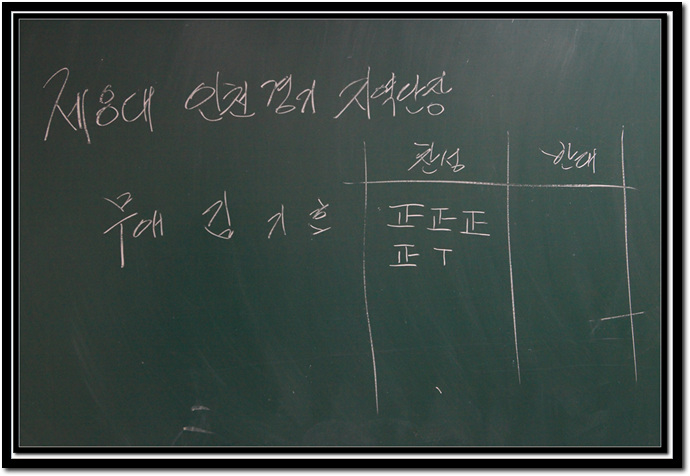 제8대 인천경기 지역단장
찬성 반대
무애 김 기 正正正
正 丅